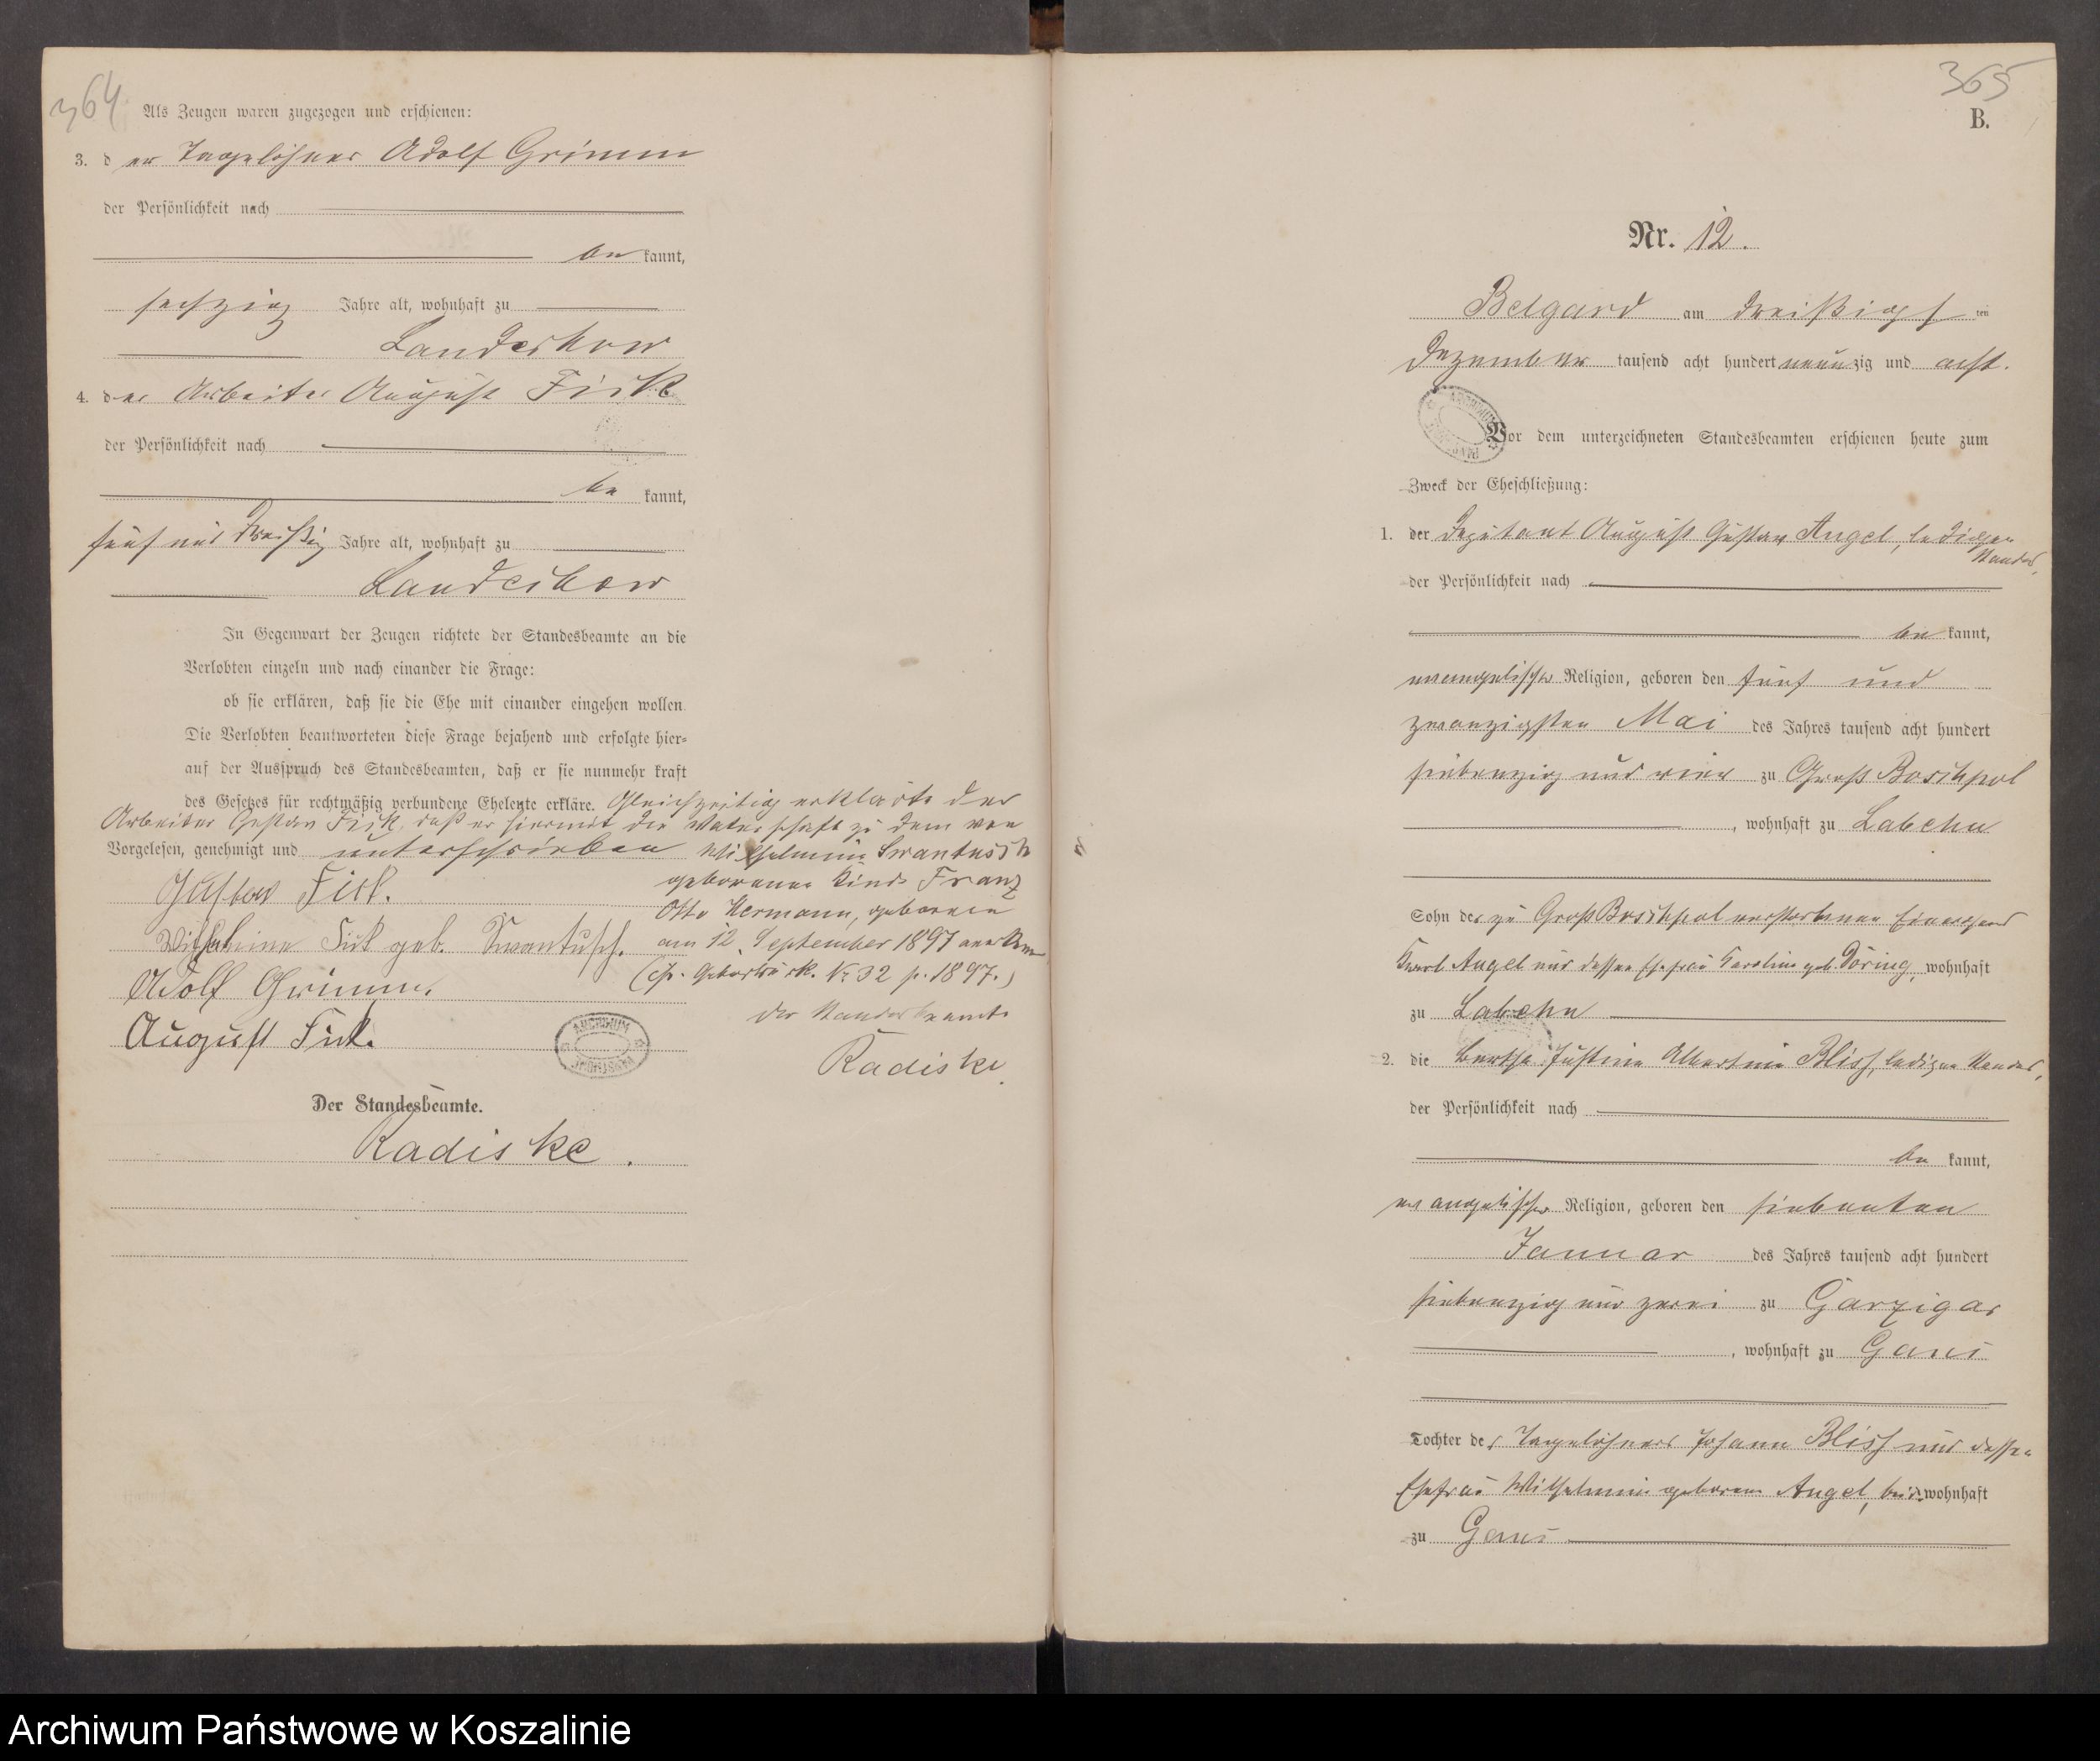 364
Als Zeugen waren zugezogen und erschienen:
3. der Tagelöhner Adolf Grimm
der Persönlichkeit nach
bekannt,
sechzig Jahre alt, wohnhaft zu
Landechow
4. der Arbeiter August Fick
der Persönlichkeit nach
bekannt,
fünf und dreißig Jahre alt, wohnhaft zu
Landechow
In Gegenwart der Zeugen richtete der Standesbeamte an die
Verlobten einzeln und nach einander die Frage:
ob sie erklären, daß sie die Ehe mit einander eingehen wollen.
Die Verlobten beantworteten diese Frage bejahend und erfolgte hier-
auf der Ausspruch des Standesbeamten, daß er sie nunmehr kraft
des Gesetzes für rechtmäßig verbundene Eheleute erkläre. Gleichzeitig erklärte der
Arbeiter Gustav Fick, daß er hiermit die Vaterschaft zu dem von
Vorgelesen, genehmigt und unterschrieben Wilhelmine Swantusch
geborenen Kinde Franz
Otto Hermann, geboren
am 12. September 1897 anerkenne
(cfr. Geburtsurk. Nr. 32 p. 1897.)
Der Standesbeamte
Radiske
Gustav Fick.
Wilhelmine Fick geb. Swantusch.
Adolf Grimm.
August Fick.
ARCHIWUM
Der Standesbeamte.
Radiske.
365
B.
Nr. 12.
Belgard am dreißigsten
Dezember tausend acht hundert neunzig und acht.
ARCHIWUM
Vor dem unterzeichneten Standesbeamten erschienen heute zum
Zweck der Eheschließung:
1. der Deputant August Gustav Angel, ledigen
Standes,
der Persönlichkeit nach
bekannt,
evangelischer Religion, geboren den fünf und
zwanzigsten Mai des Jahres tausend acht hundert
siebenzig und vier zu Groß Boschpol
, wohnhaft zu Labehn
Sohn des zu Groß Boschpol verstorbenen Einwohners
Karl Angel und dessen Ehefrau Karoline geb. Döring, wohnhaft
zu Labehn
2. die Bertha Justine Albertine Blisch, ledigen Standes,
der Persönlichkeit nach
bekannt,
evangelischer Religion, geboren den siebenten
Januar des Jahres tausend acht hundert
siebenzig und zwei zu Garzigar
, wohnhaft zu Gans
Tochter des Tagelöhners Johann Blisch und dessen
Ehefrau Wilhelmine geborene Angel, beide wohnhaft
zu Gans
Archiwum Państwowe w Koszalinie